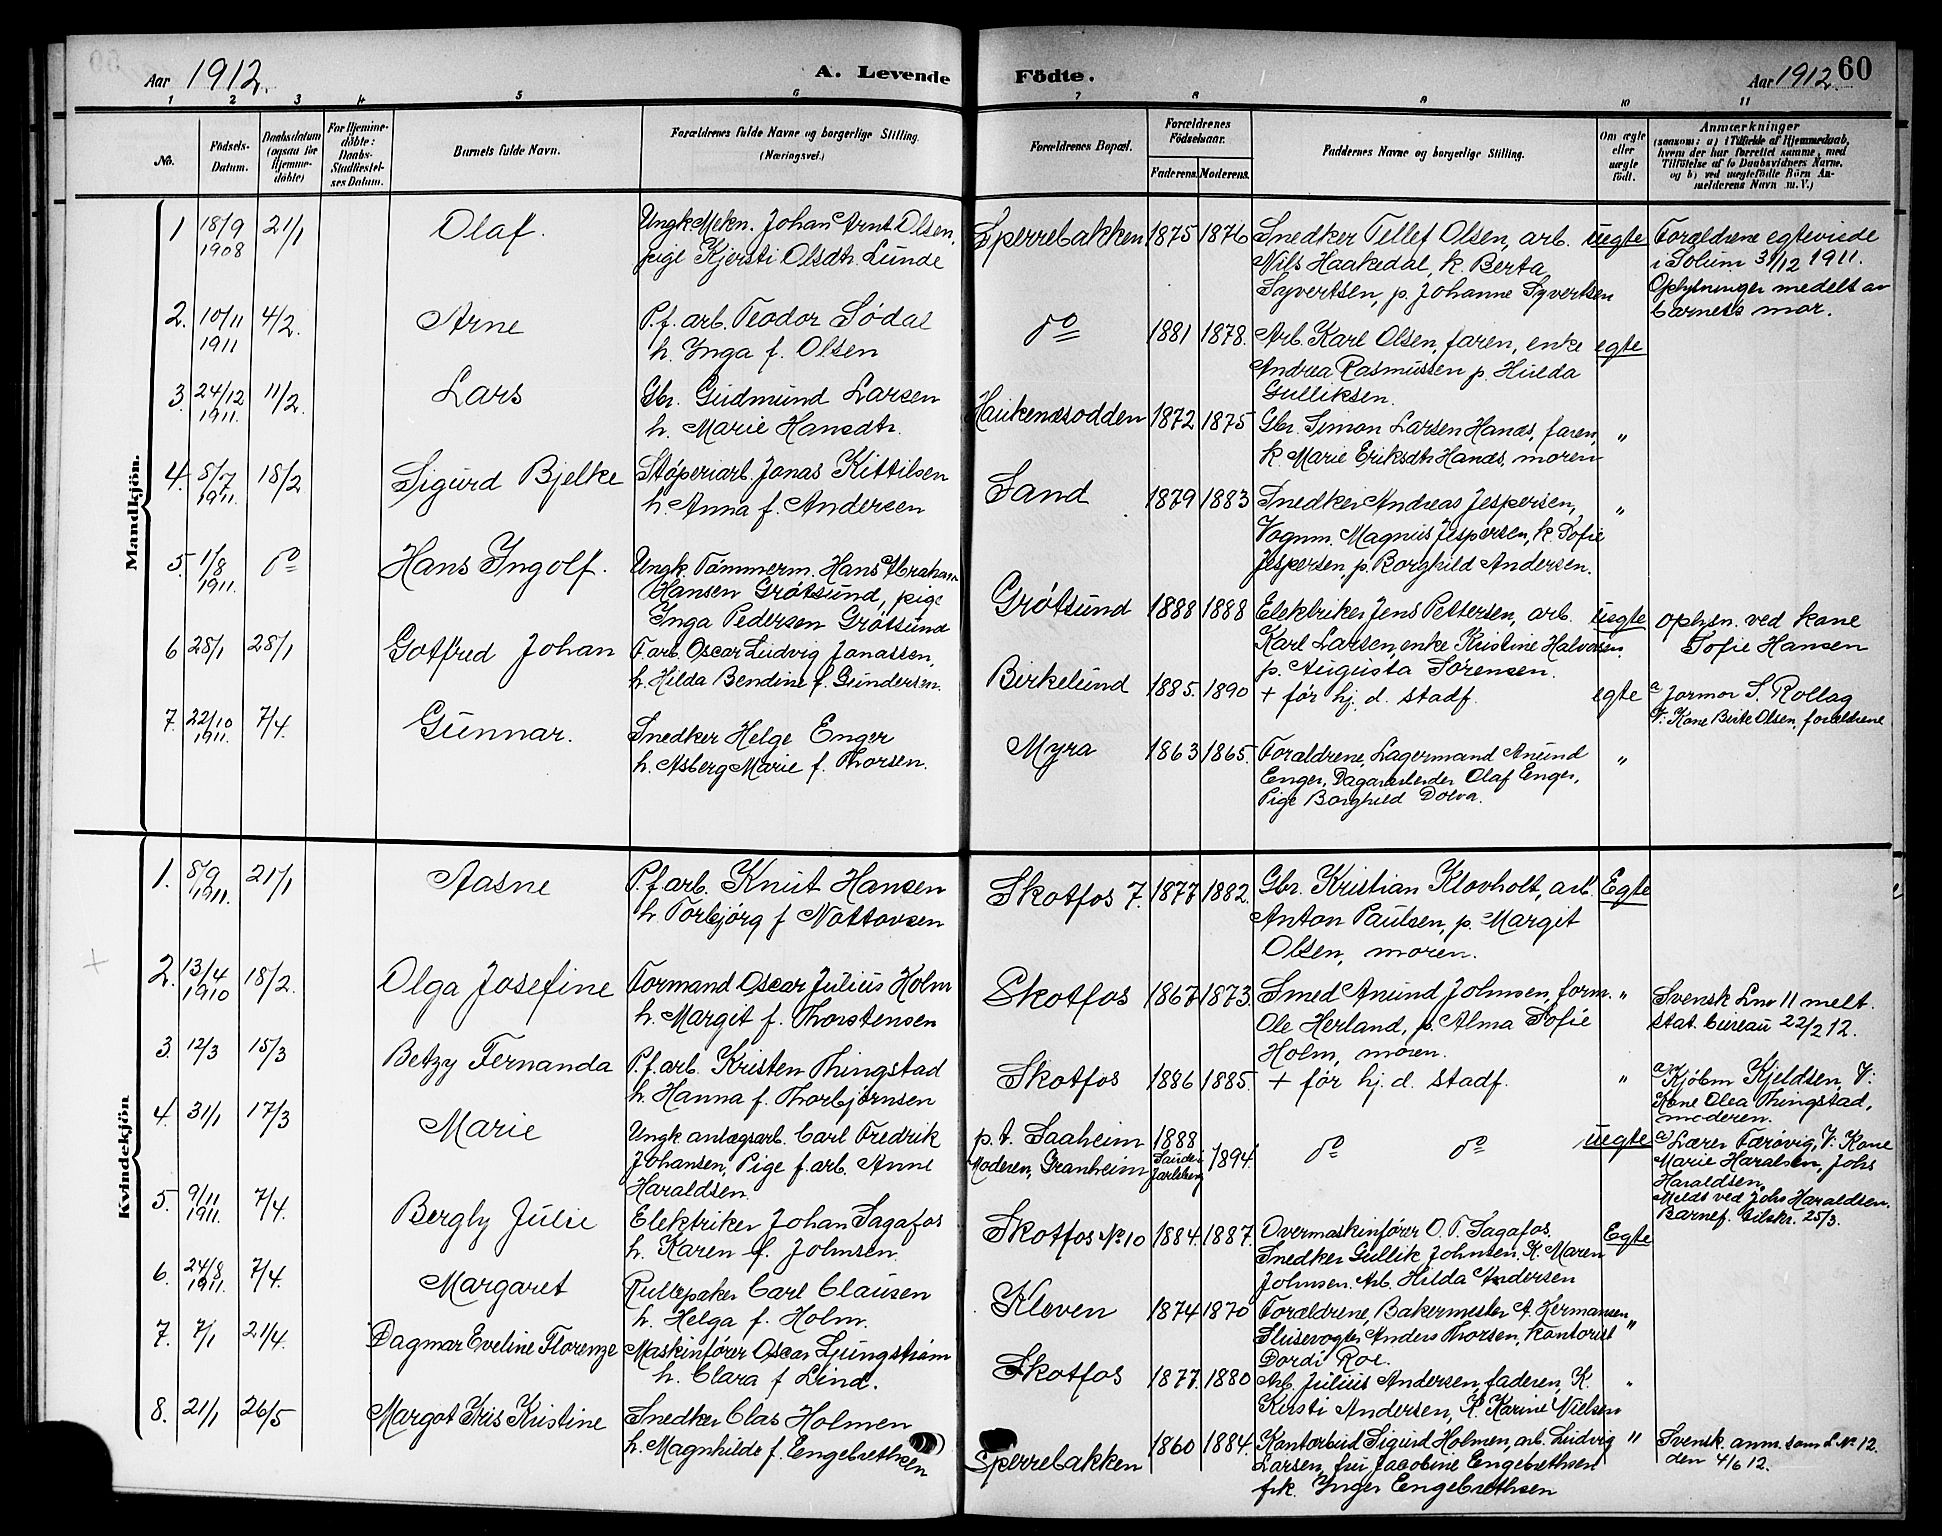 Aar 1912. A. Levende Födte. Aar 1912 60
1 2 3 4 5 6 7 8 9 10 11
No. Födsels-Datum. Daabsdatum (ogsaa for Hjemme-döbte) For Hjemme-döbte: Daabs-Stadfæstel-ses Datum. Barnets fulde Navn. Forældrenes fulde Navne og borgerlige Stilling. (Næringsvei.) Forældrenes Bopæl. Forældrenes Födselsaar. Faderens. Moderens. Faddernes Navne og borgerlige Stilling. Om ægte eller uægte født. Anmærkninger (saasom: a) i Tilfælde af Hjemmedaab, hvem der har forrettet samme, med Tilföielse af to Daabsvidners Navne, og b) ved uægtefödte Börn An-melderens Navn m. V.)
Mandkjön.
1 18/9 1908 21/1 Olaf. Ungk. Mekn. Johan Arnt Olsen, Sperrebakken 1875 1876 Snedker Tellef Olsen, arb. uegte Forældrene egteviede
pige Kjersti Olsdtr. Lunde Nils Haakedal, k. Berta i Solum 31/12 1911.
Syvertsen, p. Johanne Syvertsen Oplysninger medelt av
barnets mor.
2. 10/11 1911 4/2. Arne P.f. arb. Teodor Sødal do 1881 1878. Arb. Karl Olsen, faren, enke egte
h. Inga f. Olsen Andrea Rasmussen p. Hulda
Gulliksen.
3. 24/12 1911. 11/2. Lars Gbr. Gudmund Larsen Haukenæsodden 1872 1875 Gbr. Simon Larsen Hanæs, faren, "
h. Marie Hansdtr. k. Marie Eriksdtr Hanæs, moren
4. 8/7 1911. 18/2 Sigurd Bjelke Støperiarb. Jonas Kittilsen Sand 1879 1883 Snedker Andreas Jespersen, "
h. Anna f. Andersen Vognm. Magnus Jespersen, k. Sofie
Jespersen, p. Borghild Andersen.
5. 1/8 1911. do Hans Ingolf. Ungk. Tömmerm. Hans Abraham Grøtsund 1888 1888 Elektriker Jens Pettersen, arb. uegte oplysn. ved kone
Hansen Grøtsund, pige Karl Larsen, enke Kristine Halvorsen. Sofie Hansen
Inga Pedersen Grøtsund p. Augusta Sørensen.
6 28/1 28/1 Gotfred Johan F.arb. Oscar Ludvig Jonassen, Birkelund 1885. 1890 + før hj. d. stadf. egte a Jormor S. Rollag
h. Hilda Bendine f. Gundersen. V: Kone Birte Olsen, forældrene
7. 22/10 1911. 7/4. Gunnar. Snedker Helge Enger Myra 1863 1865. Forældrene, Lagermand Anund "
h. Asberg Marie f. Thorsen. Enger, Dagarbeider Olaf Enger,
Pige Borghild Dolva.
Kvindekjön
1. 8/9 1911. 21/1 Aasne P.f.arb. Knut Hansen Skotfos 7. 1877 1882. Gbr. Kristian Klovholt, arb. Egte
h. Torbjörg f Nottovsen Anton Paulsen, p. Margit
Olsen, moren.
2. 13/4 1910 18/2. Olga Josefine Formand Oscar Julius Holm Skotfos 1867 1873. Smed Anund Johnsen, form. " Svensk Lnr 11 melt.
h. Margit f. Thorstensen Ole Herland, p. Alma Sofie stat. bureau 22/2 12.
Holm, moren.
3. 12/3 15/3 Betzy Fernanda P.f. arb. Kristen Thingstad Skotfos 1886 1885. + før hj. d. stadf. " a Kjøbm Kjeldsen, V:
h. Hanna f. Thorbjørnsen Kone Olea Thingstad,
moderen.
4. 31/1 17/3 Marie Ungk. anlægsarb. Carl Fredrik p.t. Saaheim 1888 1894. do do uegte a Lærer Færøvig, V: Kone
Johansen, Pige f.arb. Anne Moderen, Granheim Sande Jarlsberg Marie Haralsen, Johs
Haraldsen. Haraldsen.
Meldt ved Johs Haraldsen.
Barnef. tilskr. 25/3.
5. 9/11 1911. 7/4. Bergly Julie Elektriker Johan Sagafos Skotfos No 10 1884. 1887. Overmaskinfører O. T. Sagafos. Egte
h. Karen f. Johnsen Snedker Gullik Johnsen. K. Maren
Johnsen. Arb. Hilda Andersen
6. 24/8 1911. 7/4. Margaret Rullepaker Carl Clausen Kleven 1874 1870 Forældrene, Bakermester A. Hermansen "
h. Helga f. Holm. Slusevogter Anders Thorsen, Kontorist
Dordi Roe.
7. 7/1 21/4. Dagmar Eveline Florenze Maskinfører Oscar Ljungstrøm Skotfos 1877. 1880 Arb. Julius Andersen, faderen, K. "
h. Clara f Lind. Kirsti Andersen, K. Karine Nielsen
8. 21/1 26/5 Margot Iris Kristine Snedker Clas Holmen Sperrebakken 1860 1884. Kontorbud Sigurd Holmen, arb. Ludvig " Svensk. anm. som L No 12.
h. Magnhilde f. Engebrethsen Larsen, fru Jacobine Engebrethsen den 4/6 12.
frk. Inger Engebrethsen